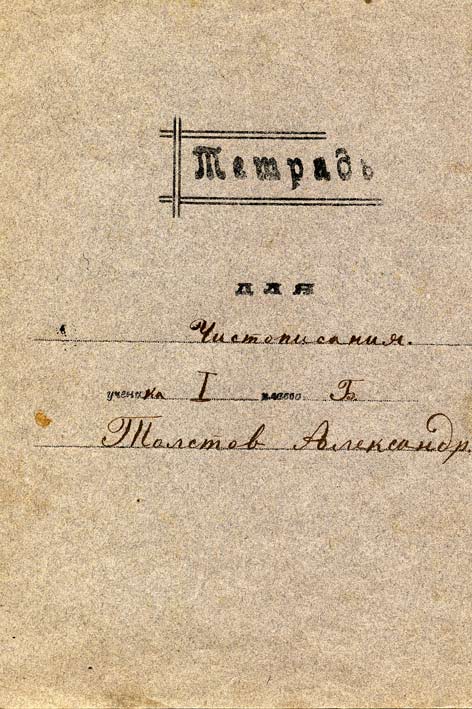 Тетрадь
для
Чистописания.
ученика I класса Б
Толстов Александр.